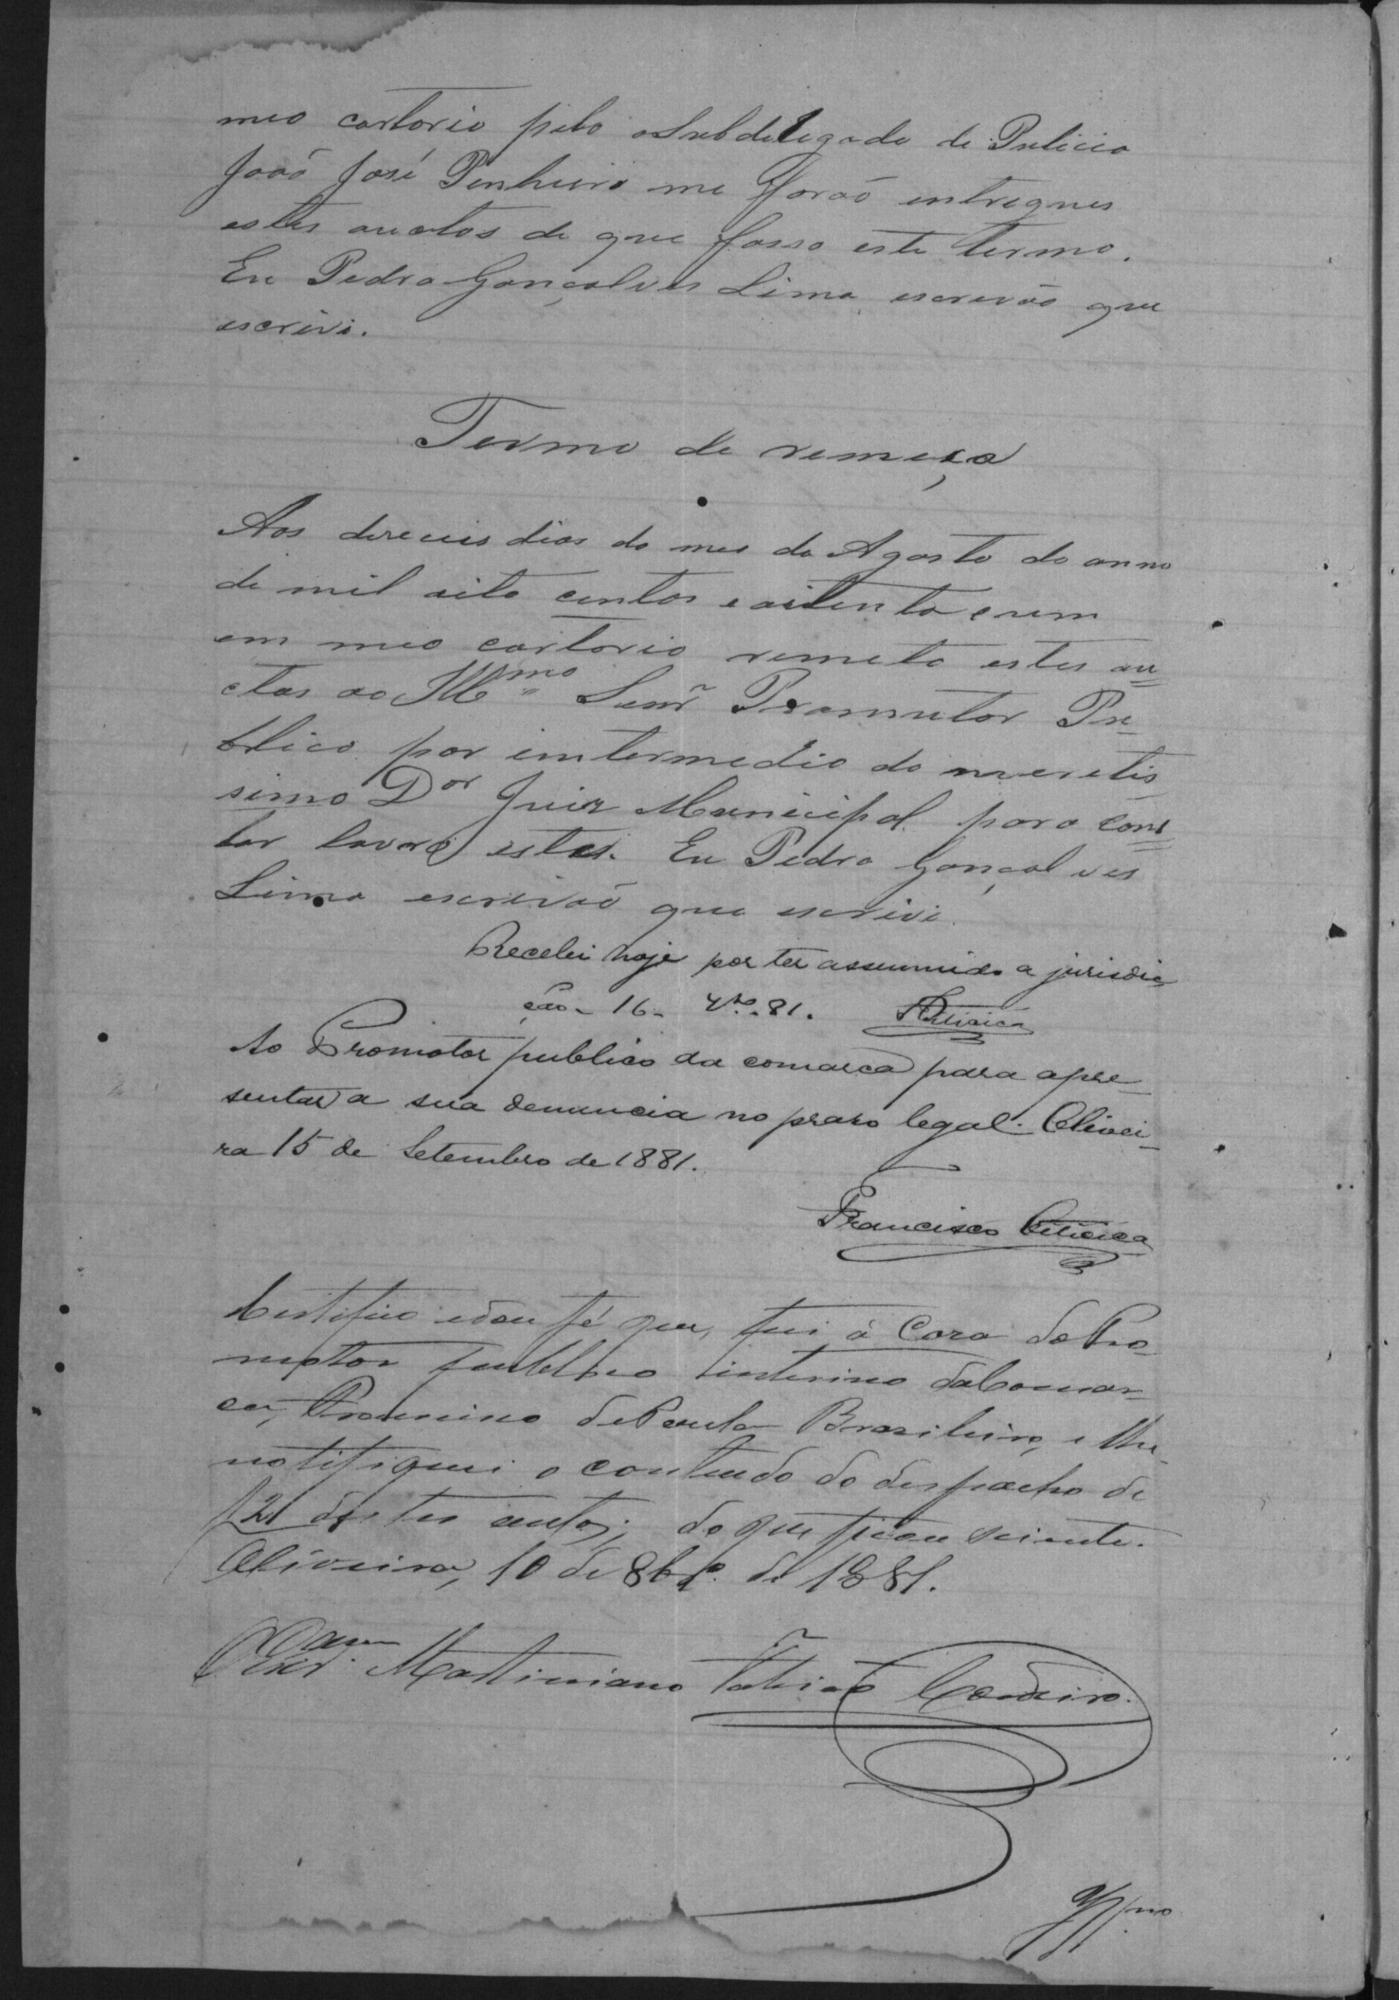 meo cartorio pelo o Subdelegado de Pulicia
João José Pinheiro me forão intregues
estes auctos de que fasso este termo.
Eu Pedro Gonçalves Lima escrivão que
escrivi.
Termo de remeça
Aos deseceis dias do mes de Agosto do anno
de mil oito centos e oitenta e um
em meo cartorio remeto estes au=
ctos ao Mmo Senr Promutor Pu=
blico por imtermedio do meretis
simo Dor Juiz Municipal para cons=
tar lavro estes. Eu Pedro Gonçalves
Lima escrivão que escrivi.
Recebi hoje por ter assumido a jurisdic
ção - 16 - 7bro 81. Oliveira
Ao Promotor publico da comarca para apre-
sentar a sua denuncia no praso legal. Olivei-
ra 15 de Setembro de 1881.
Francisco Oliveira
Certifico e dou fé que, fui á Caza do Pro-
motor publico interino da Comar-
ca, de Paula Brazileiro, e lhe
notifiquei o contheudo do despacho de
f 21 destes autos; do que ficou sciente.
Oliveira, 10 de 8br.o de 1881.
O Escram Martiniano Cordeiro.